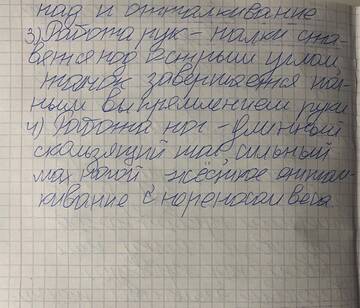 над и отталкивание
3) Работа рук - палки ста-
вятся под острым углом
толчок завершается пол-
ным выпрямлением руки
4) Работа ног - длинный
скользящий шаг, сильный
мах ногой - жёсткое оттал-
кивание с переносом веса